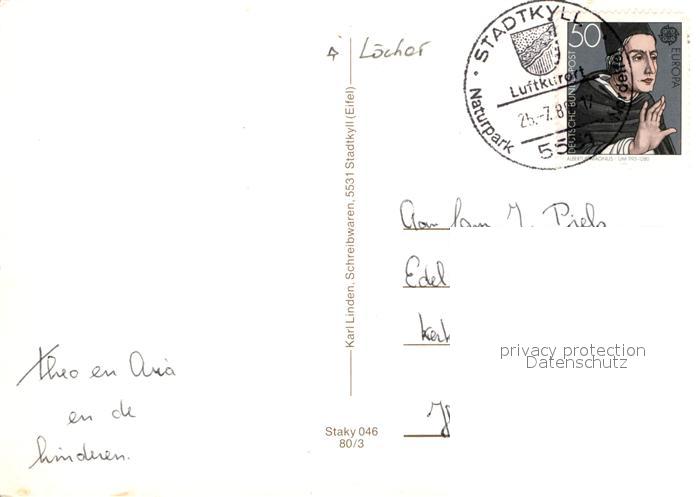 Löcher
STADTKYLL
Luftkurort
Naturpark
50
DEUTSCHE BUNDESPOST
EUROPA
ALBERTUS MAGNUS · UM 1193-1280
Karl Linden, Schreibwaren, 5531 Stadtkyll (Eifel)
Aan fam J. Piels
Edel
privacy protection
Datenschutz
Theo en Aria
en de
kinderen.
Staky 046
80/3